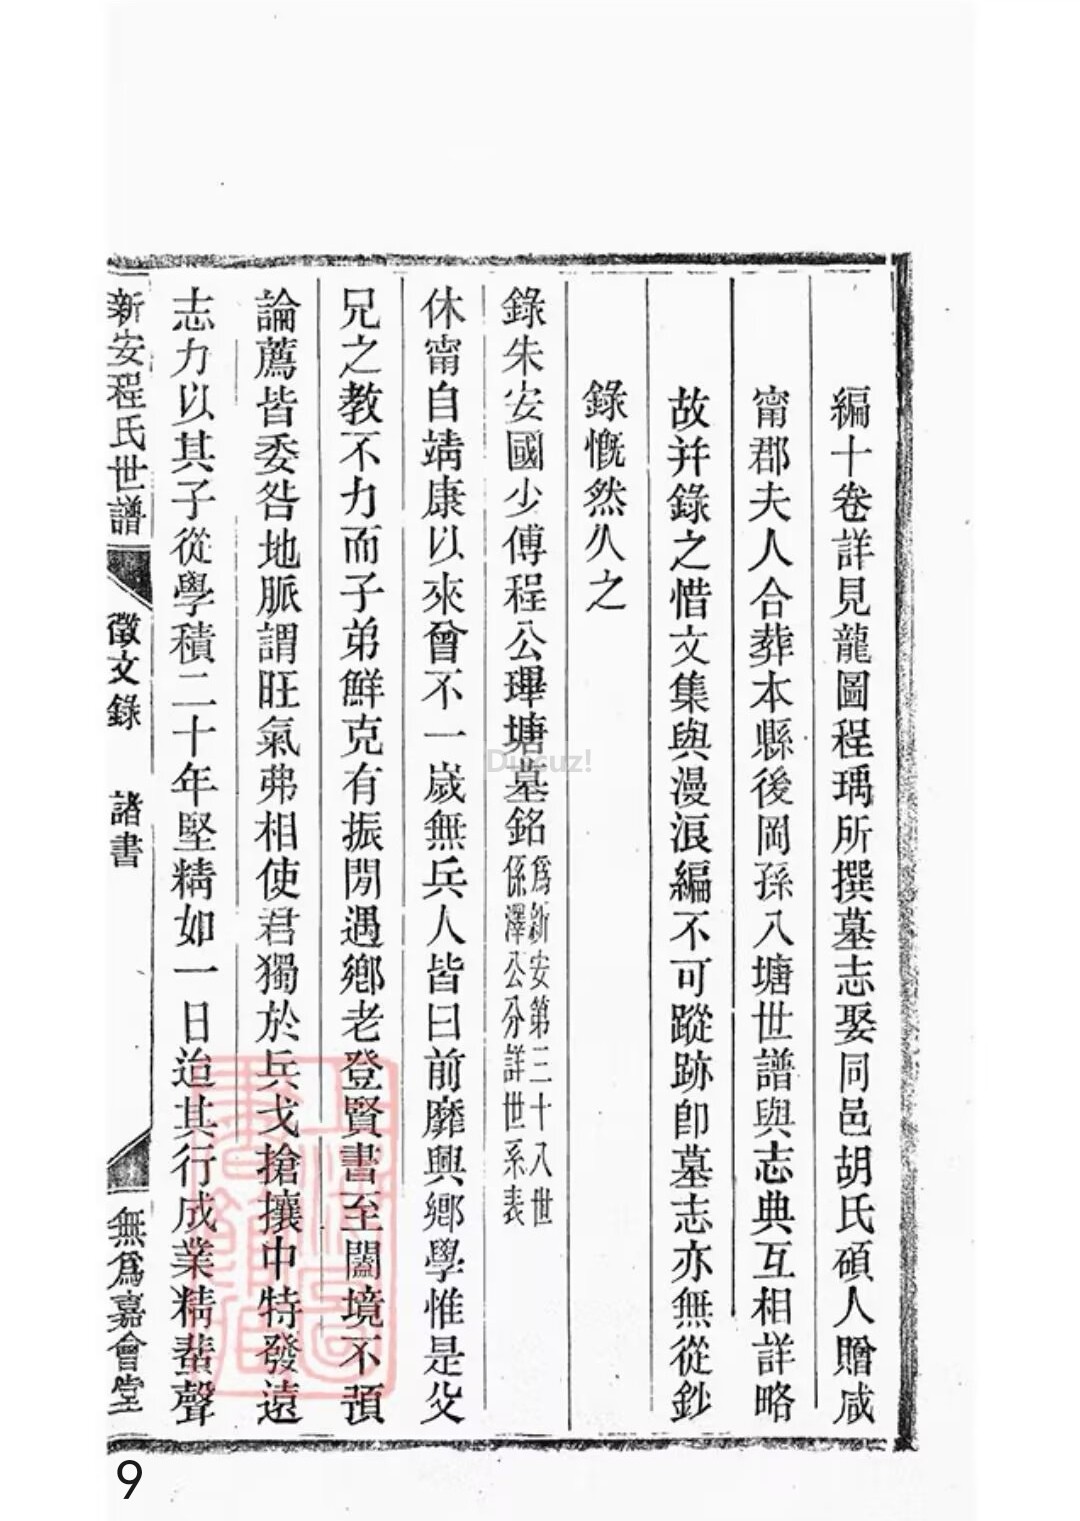 編十卷詳見龍圖程瑀所撰墓志娶同邑胡氏碩人贈咸
甯郡夫人合葬本縣後岡孫八塘世譜與志典互相詳略
故并錄之惜文集與漫浪編不可蹤跡卽墓志亦無從鈔
錄慨然久之
錄朱安國少傅程公琿塘墓銘
爲新安第三十八世
係澤公分詳世系表
休甯自靖康以來曾不一歲無兵人皆曰前靡興鄉學惟是父
兄之教不力而子弟鮮克有振閒遇鄉老登賢書至闔境不預
論薦皆委咎地脈謂旺氣弗相使君獨於兵戈搶攘中特發遠
志力以其子從學積二十年堅精如一日迨其行成業精蜚聲
新安程氏世譜
徵文錄
諸書
無爲嘉會堂
9
Ducuz!
上海圖書館藏